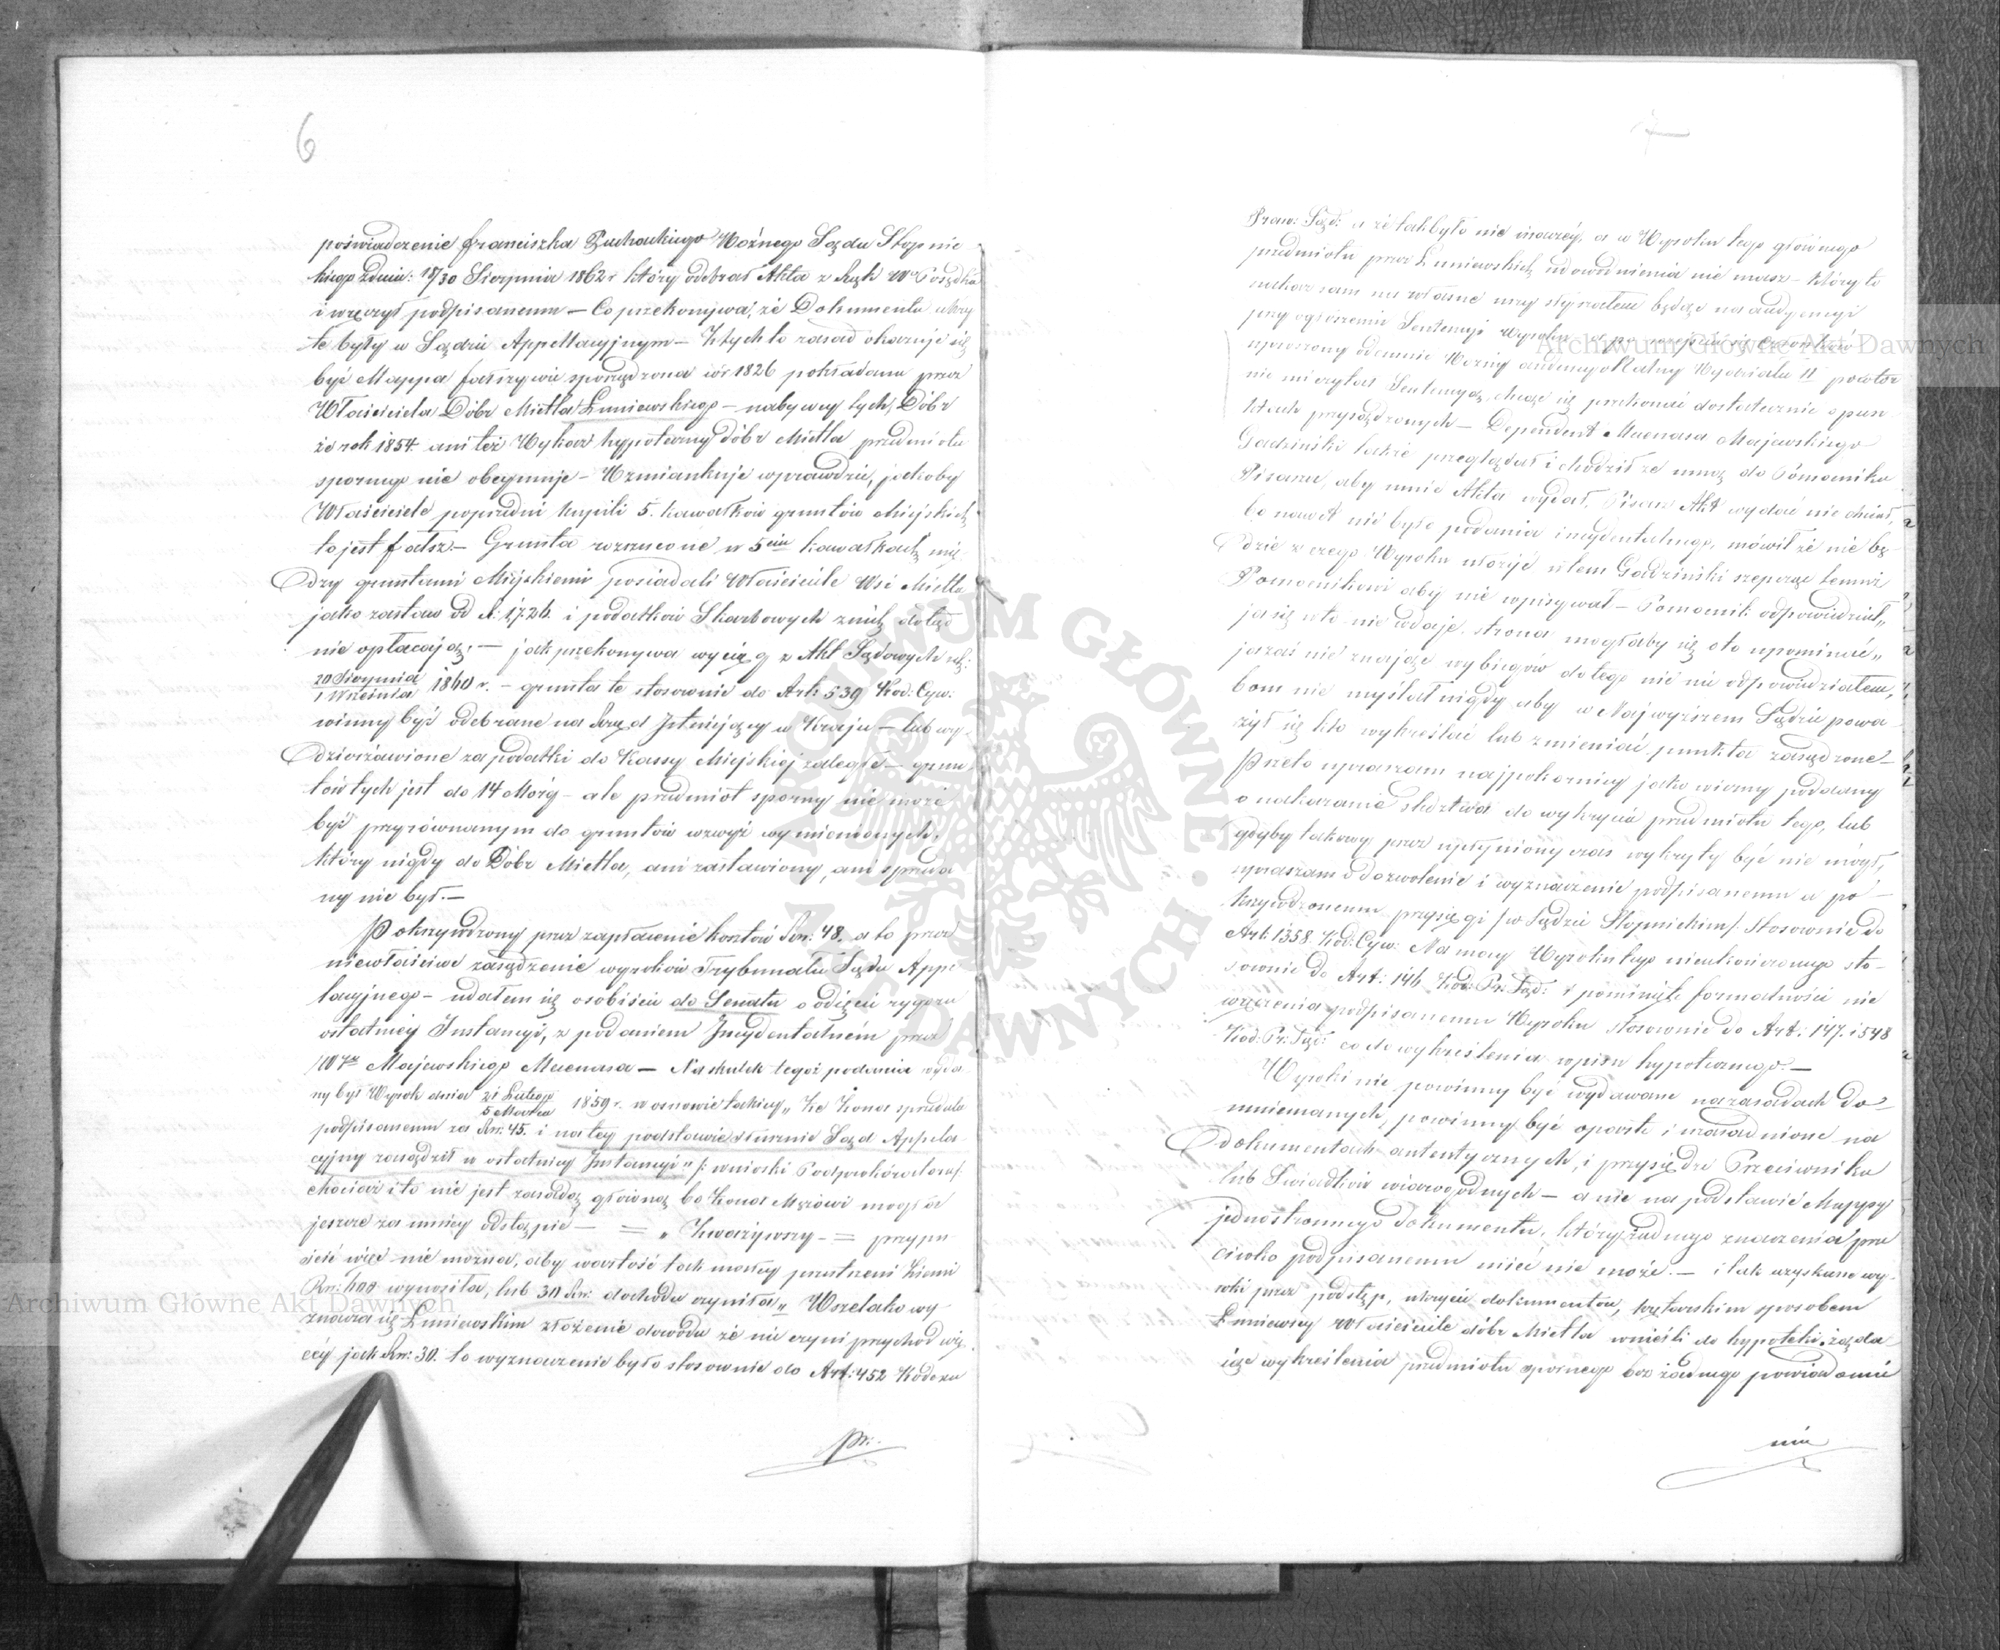 6
poświadczenie Franciszka Woźnego Sądu Stopnic
kiego z dnia: 18/30 Sierpnia 1862 r który odebrał Akta z Rąk Wo
i wręczył podpisanemu — Co przekonywa, że Dokumenta ukry
te były w Sądzie Appellacyjnym — Z tych to zasad okazuje się
być Mappa fałszywie sporządzona w r. 1826 pokładana przez
Właściciela Dóbr Mietla Łuniewskiego — nabywcy tych Dóbr
że rok 1854. ani też Wykaz hypoteczny dóbr Mietla przedmiotu
spornego nie obejmuje — Wzmiankuje wprawdzie, jakoby
Właściciele poprzedni kupili 5. kawałków gruntów Miejskich
to jest fałsz — Grunta rozrzucone w 5ciu kawałkach mię
dzy gruntami Miejskiemi posiadali Właściciele Wsi Mietla
jako zastaw od r. 1726. i podatków Skarbowych z nich dotąd
nie opłacając, — jak przekonywa wyciąg z Akt Sądowych
20 Sierpnia
1 Września 1840 r. — grunta te stosownie do Art: 539 Kod: Cyw:
winny być odebrane na Rząd Istniejący w Kraju — lub wy
dzierżawione za podatki do Kassy Miejskiej zaległe — grun
tów tych jest do 14 Mórg — ale przedmiot sporny nie może
być przyrównanym do gruntów wzwyż wymienionych.
który nigdy do Dóbr Mietla, ani zastawiony, ani sprzeda
ny nie był. —
Pokrzywdzony przez zapłacenie kosztów Rsr: 48. a to przez
niewłaściwe zasądzenie wyroków Trybunału Sądu Appe
lacyjnego — udałem się osobiście do Senatu o odjęcie rygoru
ostatniej Instancyi, z podaniem Incydentalnem przez
Majewskiego Mecenasa — Na skutek tegoż podania wyda
ny był Wyrok dnia 21 Lutego
5 Marca 1859 r. w osnowie takiej „ Że Żona sprzedała
podpisanemu za Rsr: 45. i na tej podstawie słusznie Sąd Appela
cyjny zasądził w ostatniej Instancyi „ /: wnioski Podprokuratora /:
chociaż i to nie jest zasadą główną bo Żona Mężowi mogła
jeszcze za mniej odstąpić — = „ Zważywszy — = przypu
ścić więc nie można, aby wartość tak małej przestrzeni Ziemi
Rsr: 400 wynosiła, lub 30 Rsr: dochodu czyniła „ Wszelako wy
znacza się Łuniewskim złożenie dowodu że nie czyni przychod wię
cej jak Rsr: 30. to wyznaczenie było stosownie do Art: 452 Kodexu
Pr:
7
Praw: Sąd: a że tak było nie inaczej, a w Wyroku tego głównego
przedmiotu przez Łuniewskich udowodnienia nie masz — który to
nakaz sam na własne uszy słyszałem będąc na audyencyi
przy ogłoszeniu Sentencyi Wyroku, a po
uproszony odemnie Woźny audencyonalny Wydziału II powtór
nie mi czytał Sentencyą, chcąc się przekonać dostatecznie o pun
ktach przysądzonych — Dependent Mecenasa Majewskiego
Gadziński także przeglądał i chodził ze mną do Pomocnika
Pisarza, aby mnie Akta wydał, Pisarz Akt wydać nie chciał,
bo nawet nie było podania incydentalnego, mówił że nie bę
dzie z czego Wyroku ułożyć wtem Gadziński szepcząc temuż
Pomocnikowi aby nie wpisywał — Pomocnik odpowiedział „
ja się w to nie wdaję, strona mogłaby się o to upominać „
ja zaś nie znając wybiegów do tego nic nie odpowiedziałem,
bom nie myślał nigdy aby w Najwyższem Sądzie powa
żył się kto wykreślać lub zmieniać punkta zasądzone —
Przeto upraszam najpokorniej jako wierny poddany
o nakazanie śledztwa do wykrycia przedmiotu tego, lub
gdyby takowy przez upłyniony czas wykryty być nie mógł,
upraszam o dozwolenie i wyznaczenie podpisanemu a po —
krzywdzonemu przysięgi /w Sądzie Stopnickim/ Stosownie do
Art: 1358. Kod: Cyw: Na mocy Wyroku tego nieukończonego sto —
sownie do Art: 146 Kod: Pr: Sąd: i pominięte formalności nie
wręczenia podpisanemu Wyroku stosownie do Art: 147. i 548
Kod: Pr: Sąd: co do wykreślenia wpisu hypotecznego. —
Wyroki nie powinny być wydawane na zasadach do
mniemanych, powinny być oparte i uzasadnione na
dokumentach autentycznych, i przysiędze Przeciwnika
lub Świadków wiarogodnych — a nie na podstawie Mappy
jednostronnego dokumentu, który żadnego znaczenia prze
ciwko podpisanemu mieć nie może. — i tak uzyskane wy
roki przez podstęp, ukrycie dokumentów, krętarskim sposobem
Łuniewscy Właściciele dóbr Mietla wnieśli do hypoteki, żąda —
jąc wykreślenia przedmiotu spornego bez żadnego powiadomie
nia
Archiwum Główne Akt Dawnych
Archiwum Główne Akt Dawnych
ARCHIWUM GŁÓWNE AKT DAWNYCH